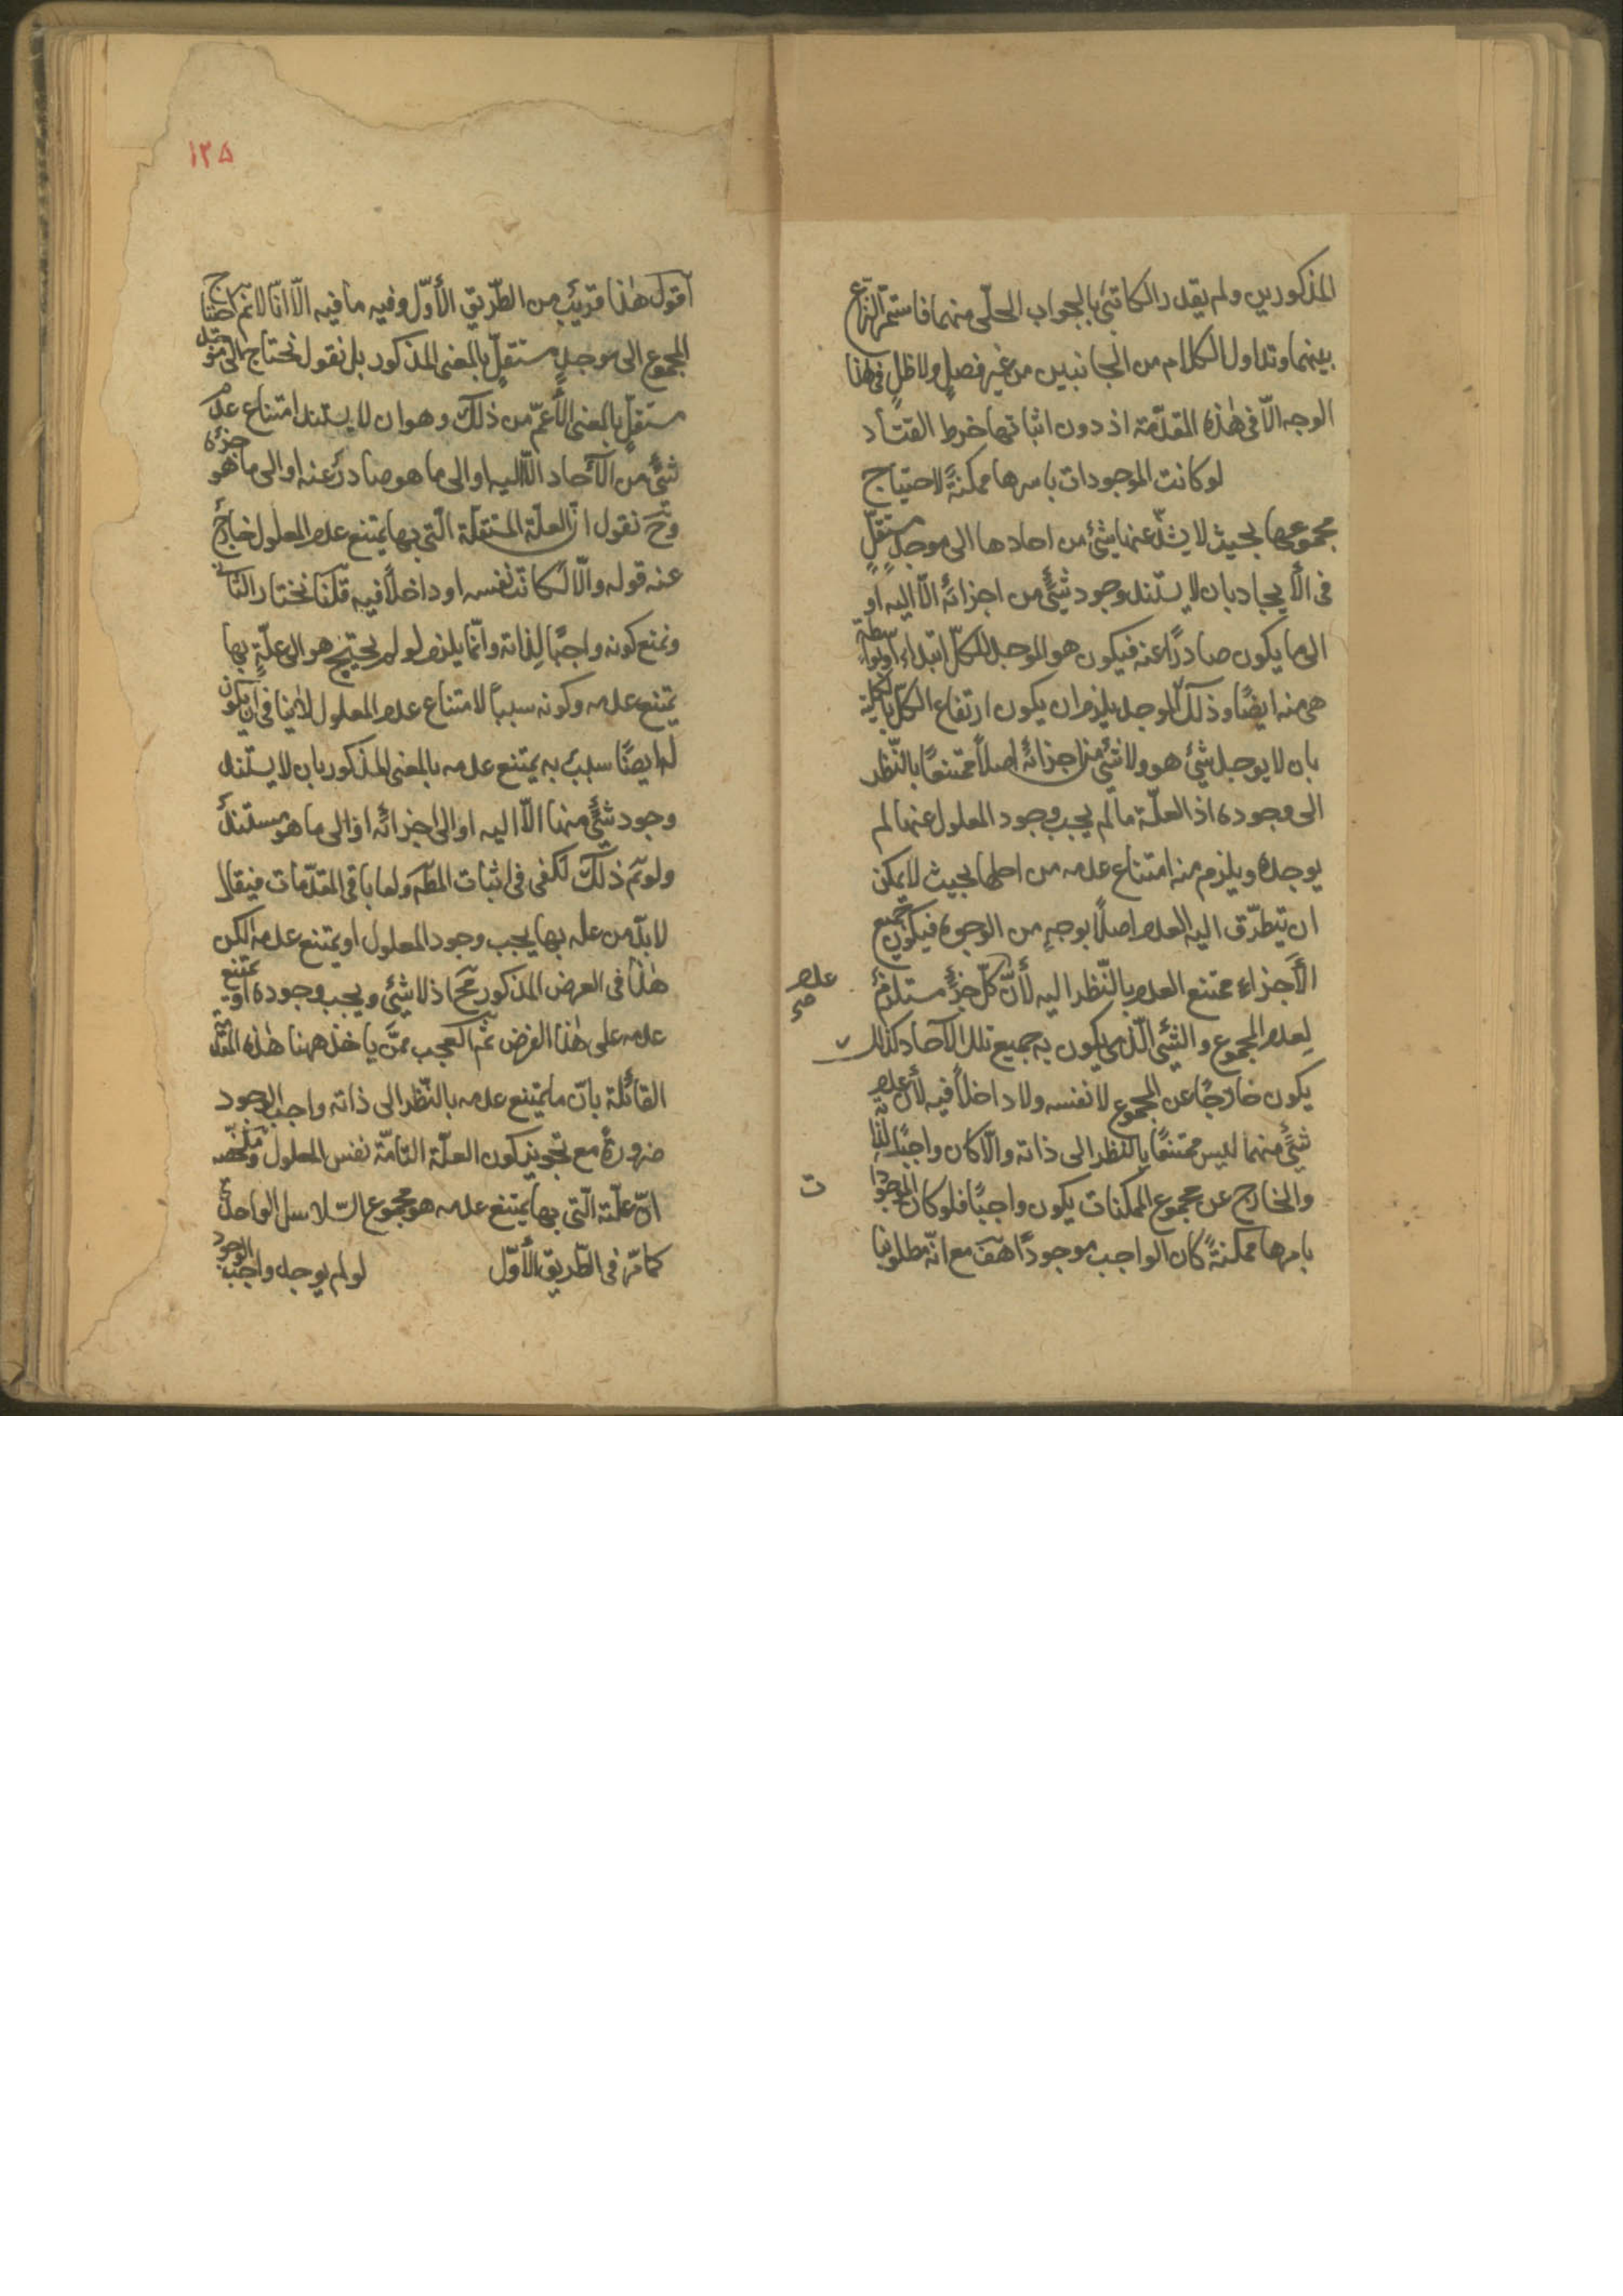 المذكورين ولم يقدر الكاتبى بالجواب الحلّى منهما فاستمرّ النزاع
بينهما وتداول الكلام من الجانبين من غير فصلٍ ولا فى هذا
الوجه الّا فى هٰذه المقدّمة اذ دون اثباتها خرط القتاد
لو كانت الموجودات باسرها ممكنةً لاحتياج
مجموعها بحيث لا يشذّ عنها شئ من احادها الى موجدٍ مستقلٍّ
فى الأيجاد بان لا يستند وجود شئٍ من اجزائه الّا اليه او
الى ما يكون صادرًا عنه فيكون هو الموجد للكلّ ابتداءً او بواسطة
هى منه ايضًا وذلك الموجد يلزم ان يكون ارتفاع الكلّ بالكلية
بان لا يوجد شئ هو ولا شئ من اجزائه اصلًا ممتنعًا بالنّظر
الى وجوده اذ العلّة ما لم يجب وجود المعلول عنها لم
يوجده ويلزم منه امتناع عدمه من اصلها بحيث لا يمكن
ان يتطرّق اليه العدم اصلًا بوجهٍ من الوجوه فيكون جميع
الأجزاء ممتنع العدم بالنّظر اليه لأنّ كلّ جزءٍ مستلزمٌ
عدم
صح
لعدم المجموع والشئ الّذى يكون به جميع تلك الآحاد كذلك
يكون خارجًا عن المجموع لا نفسه ولا داخلًا فيه لأنّ عدم
شئٍ منهما ليس ممتنعًا بالنظر الى ذاته والّا كان واجبًا لذاته
والخارج عن مجموع الممكنات يكون واجبًا فلو كان الموجودات
ت
باسرها ممكنةً كان الواجب موجودًا هف مع انّه مطلوبنا
١٢٥
اقول هٰذا قريبٌ من الطّريق الأوّل وفيه ما فيه الّا انّا لا نم احتياج
المجموع الى موجدٍ مستقلٍّ بالمعنى المذكور بل نقول نحتاج الى موجد
مستقلٍّ بالمعنى الأعمّ من ذلك وهو ان لا يستند امتناع عدم
شئٍ من الآحاد الّا اليه او الى ما هو صادرٌ عنه او الى ما هو جزئه
وح نقول انّ العلّة المستقلّة الّتى بها يمتنع عدم المعلول خارجٌ
عنه قوله والّا لكانت نفسه او داخلًا فيه قلنا نختار الثانى
ونمنع كونه واجبًا لذاته وانّما يلزم لو لم يحتج هو الى علّةٍ بها
يمتنع عدمه وكونه سببًا لامتناع عدم المعلول لا ينافى ان يكون
له ايضًا سببٌ به يمتنع عدمه بالمعنى المذكور بان لا يستند
وجود شئٍ منها الّا اليه او الى اجزائه او الى ما هو مستند
ولو تم ذلك لكفى فى اثبات المط ولغا باقى المقدّمات فيقال
لا بدّ من علة بها يجب وجود المعلول او يمتنع عدمه لكن
هٰذا فى الفرض المذكور مح اذ لا شئ ويجب وجوده او يمتنع
عدمه على هٰذا الفرض ثمّ العجب ممّن ياخذ ههنا هٰذه المقدّمة
القائلة بانّ ما يمتنع عدمه بالنّظر الى ذاته واجب الوجود
ضرورة مع تجويز كون العلّة التامّة نفس المعلول وملخّصه
انّ علّته الّتى بها يمتنع عدمه هو مجموع السّلاسل الواحدة
كما مرّ فى الطّريق الأوّل لو لم يوجد واجب الوجود